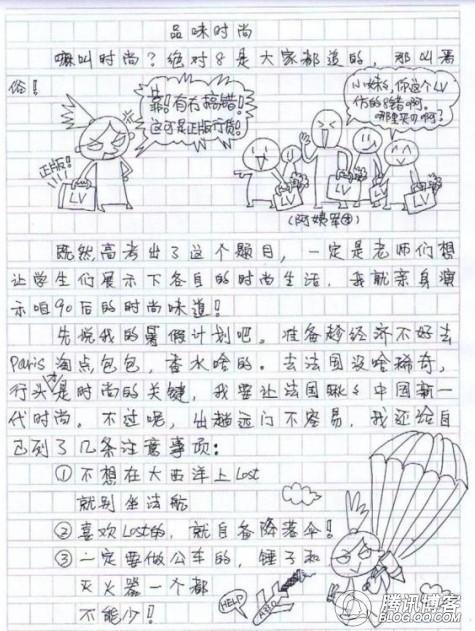 品味时尚
嘛叫时尚？绝对8是大家都追的，那叫恶
俗！
靠！有冇搞错！
这可是正版行货！
正版！
LV
小妹，你这个LV
仿的8错啊。
哪里买的啊？
LV
LV
(阿姨军团)
既然高考出了这个题目，一定是老师们想
让学生们展示下各自的时尚生活，我就亲身演
示咱90后的时尚味道！
先说我的暑假计划吧。准备趁经济不好去
Paris淘点包包，香水啥的。去法国没啥稀奇，
行头是时尚的关键，我要让法国瞅瞅中国新一
代时尚。不过呢，出趟远门不容易，我还给自
己列了几条注意事项：
①不想在大西洋上Lost
就别坐法航
②喜欢Lost的，就自备降落伞！
③一定要做公车的，锤子和
灭火器一个都
不能少！
HELP
腾讯博客
BLOG.QQ.COM